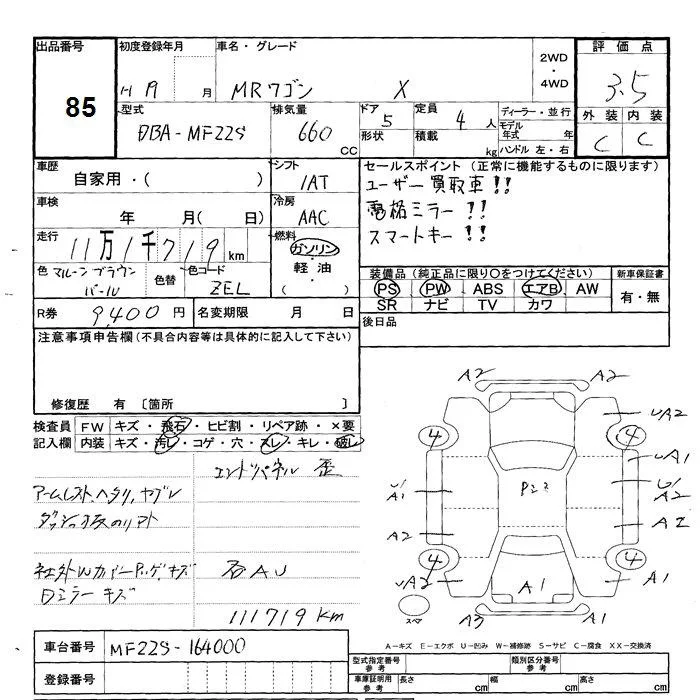 出品番号
85
初度登録年月
H 19 月
車名・グレード
MRワゴン X
2WD
・
4WD
評価点
3.5
外装 内装
C C
型式
DBA-MF22S
排気量
660 CC
ドア 5
形状
定員 4 人
積載 kg
ディーラー・並行
モデル年式 年
ハンドル 左・右
車歴
自家用・( )
シフト
IAT
車検
年 月( 日)
冷房
AAC
走行
11万1千719 km
燃料
ガソリン
・
軽油
・
( )
色 マルーン ブラウン
パール
色替
色コード
ZEL
R券 9,400 円
名変期限 月 日
セールスポイント (正常に機能するものに限ります)
ユーザー買取車!!
電格ミラー!!
スマートキー!!
装備品 (純正品に限り○をつけてください)
PS PW ABS エアB AW
SR ナビ TV カワ
新車保証書
有・無
後日品
注意事項申告欄(不具合内容等は具体的に記入して下さい)
修復歴 有 〔箇所 〕
検査員 FW キズ・飛石・ヒビ割・リペア跡・×要
記入欄 内装 キズ・汚レ・コゲ・穴・スレ・キレ・破レ
エンドパネル 歪
アームレスト、ヘタリ、ヤブレ
社外Wカバー
キズ
ミラー キズ
石AU
111719 km
A2
A2
UA2
4
4
UA1
U A1
U A2
P
A2
A2
4
4
UA2
A1
A1
スペア
A3
A1
A-キズ E-エクボ U-凹み W-補修跡 S-サビ C-腐食 XX-交換済
車台番号 MF22S-164000
登録番号
型式指定番号
参考
類別区分番号
参考
車庫証明用
参考
長さ cm 幅 cm 高さ cm